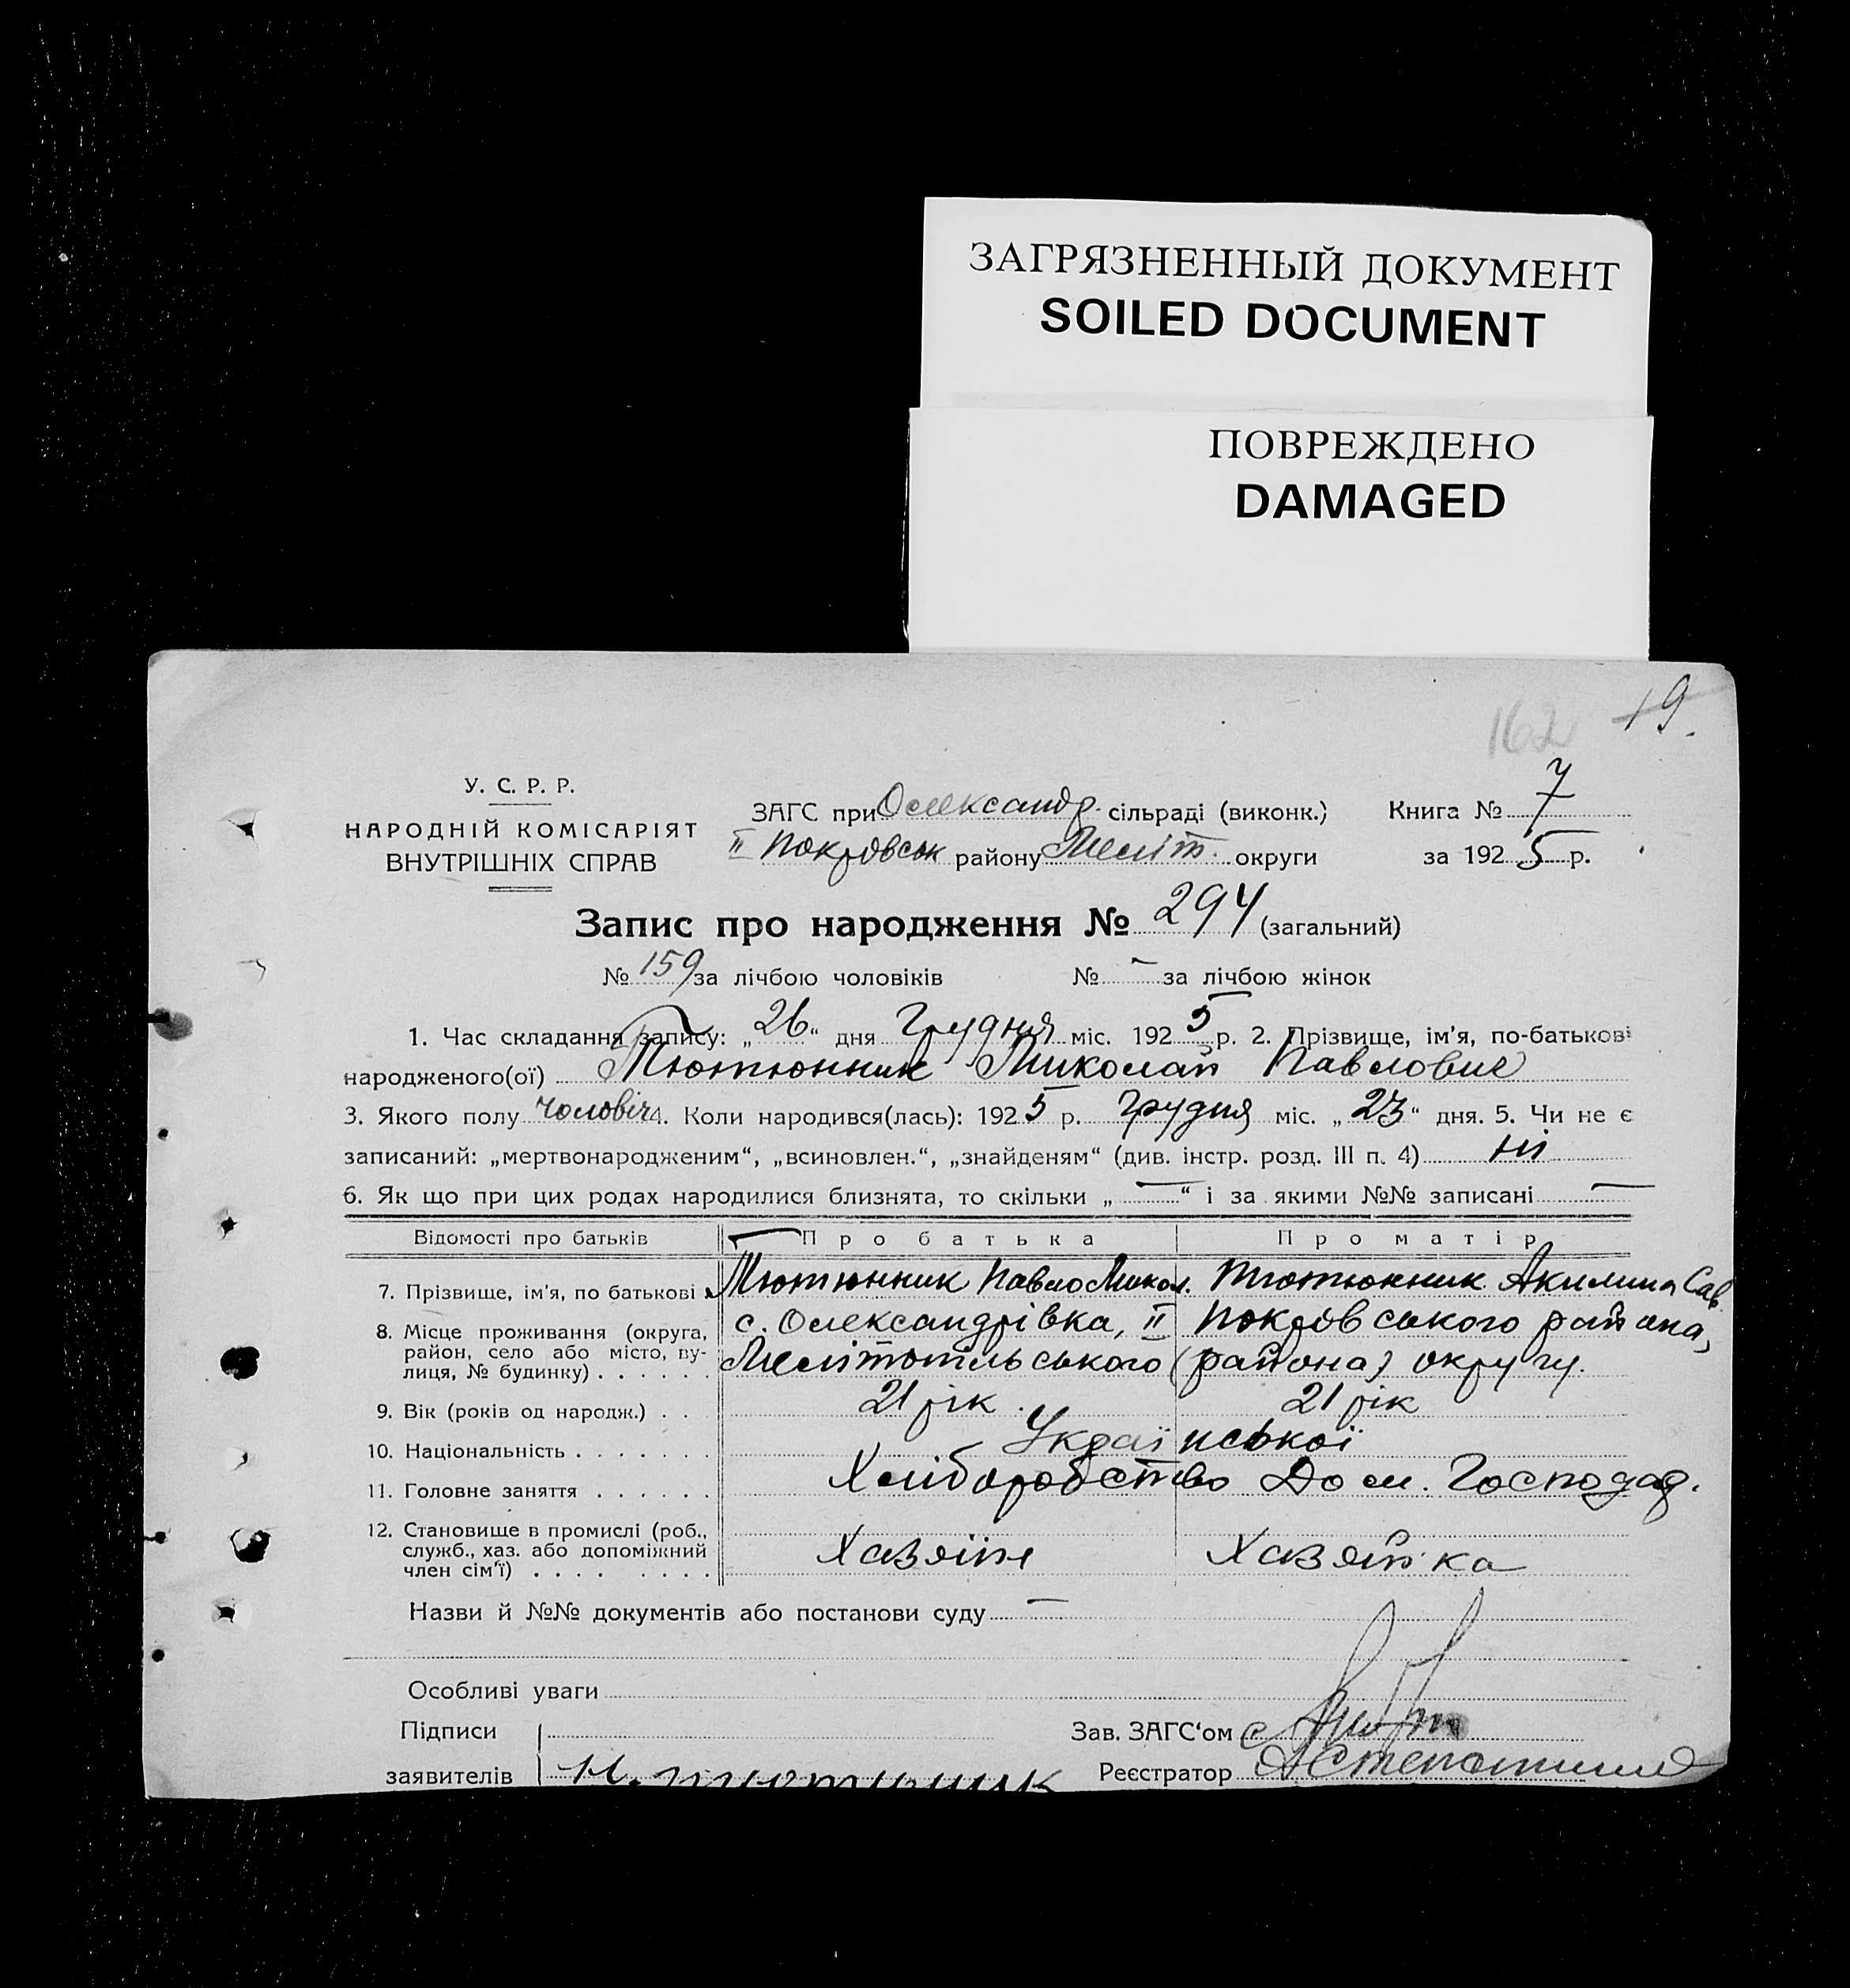 ЗАГРЯЗНЕННЫЙ ДОКУМЕНТ
SOILED DOCUMENT
ПОВРЕЖДЕНО
DAMAGED
162 19.
У. С. Р. Р.
НАРОДНІЙ КОМІСАРІЯТ
ВНУТРІШНІХ СПРАВ
ЗАГС при Олександр. сільраді (виконк.) Книга № 7
II Покровськ району Меліт. округи за 1925 р.
Запис про народження № 294 (загальний)
№ 159 за лічбою чоловіків № – за лічбою жінок
1. Час складання запису: „26“ дня Грудня міс. 1925 р. 2. Прізвище, ім'я, по-батькові
народженого(ої) Тютюнник Миколай Павлович
3. Якого полу чоловіч 4. Коли народився(лась): 1925 р. Грудня міс. „23“ дня. 5. Чи не є
записаний: „мертвонародженим“, „всиновлен.“, „знайденям“ (див. інстр. розд. III п. 4) ні
6. Як що при цих родах народилися близнята, то скільки „ — “ і за якими №№ записані —
Відомості про батьків Про батька Про матір
7. Прізвище, ім'я, по батькові Тютюнник Павло Микол. Тютюнник Акилина Сав.
8. Місце проживання (округа, с. Олександрівка, II Покровського района,
район, село або місто, ву-
лиця, № будинку) . . . . . . Мелітопільського (района) округу.
9. Вік (років од народж.) . . 21 рік. 21 рік
10. Національність . . . . . . . Української
11. Головне заняття . . . . . . Хліборобство Дом. Господар.
12. Становище в промислі (роб.,
служб., хаз. або допоміжний Хазяїн Хазяйка
член сім'ї) . . . . . . . .
Назви й №№ документів або постанови суду —
Особливі уваги
Підписи Зав. ЗАГС'ом
заявителів Н. Тютюнник Реєстратор